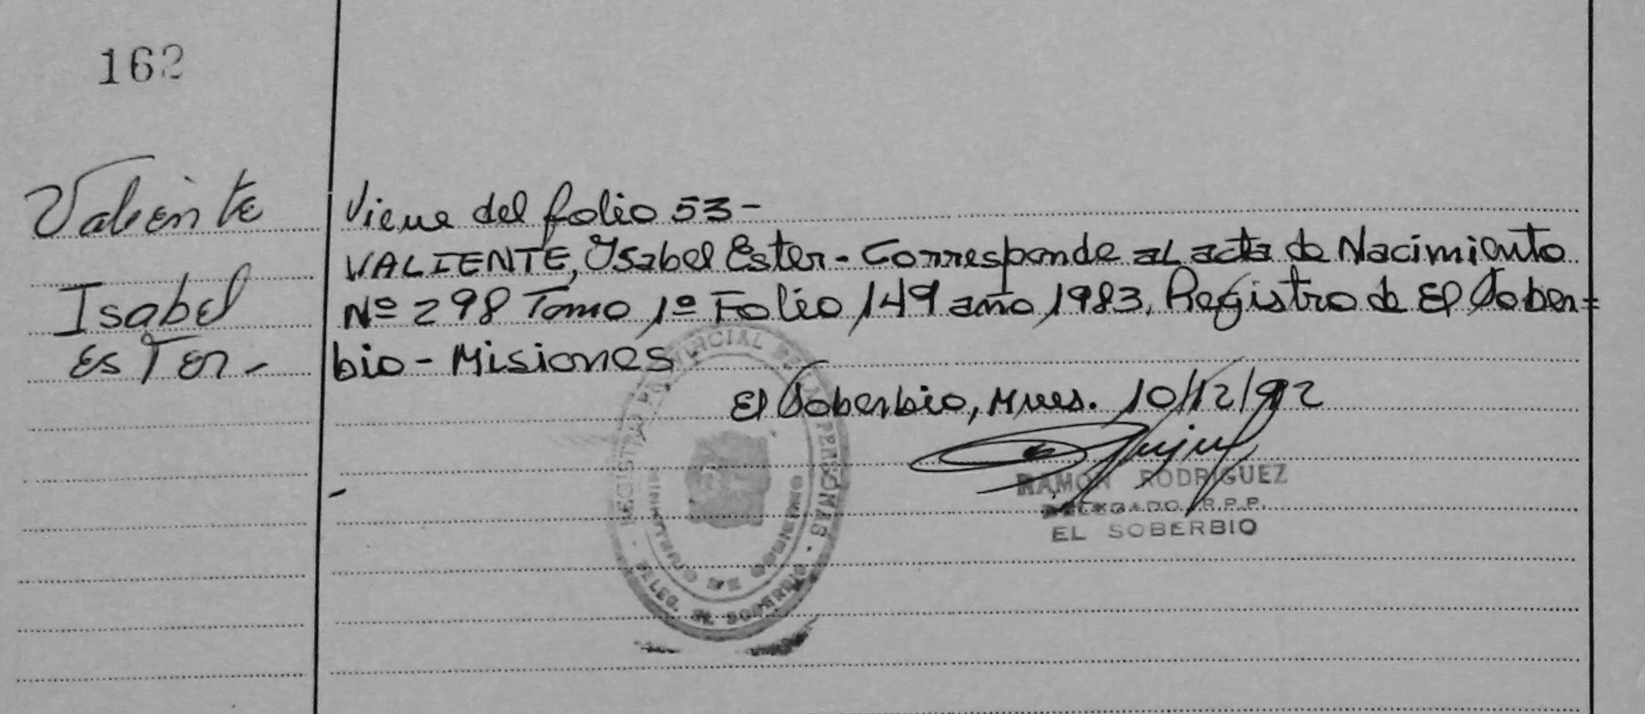 162
Valiente
Isabel
Ester -
Viene del folio 53 -
VALIENTE, Isabel Ester - Corresponde al acta de Nacimiento
Nº 298 Tomo 1º Folio 149 año 1983, Registro de El Sober=
bio - Misiones
El Soberbio, Mnes. 10/12/92
REGISTRO PROVINCIAL DE LAS PERSONAS
MINISTERIO DE GOBIERNO
DELEG. EL SOBERBIO
RAMON RODRIGUEZ
DELEGADO R.P.P.
EL SOBERBIO